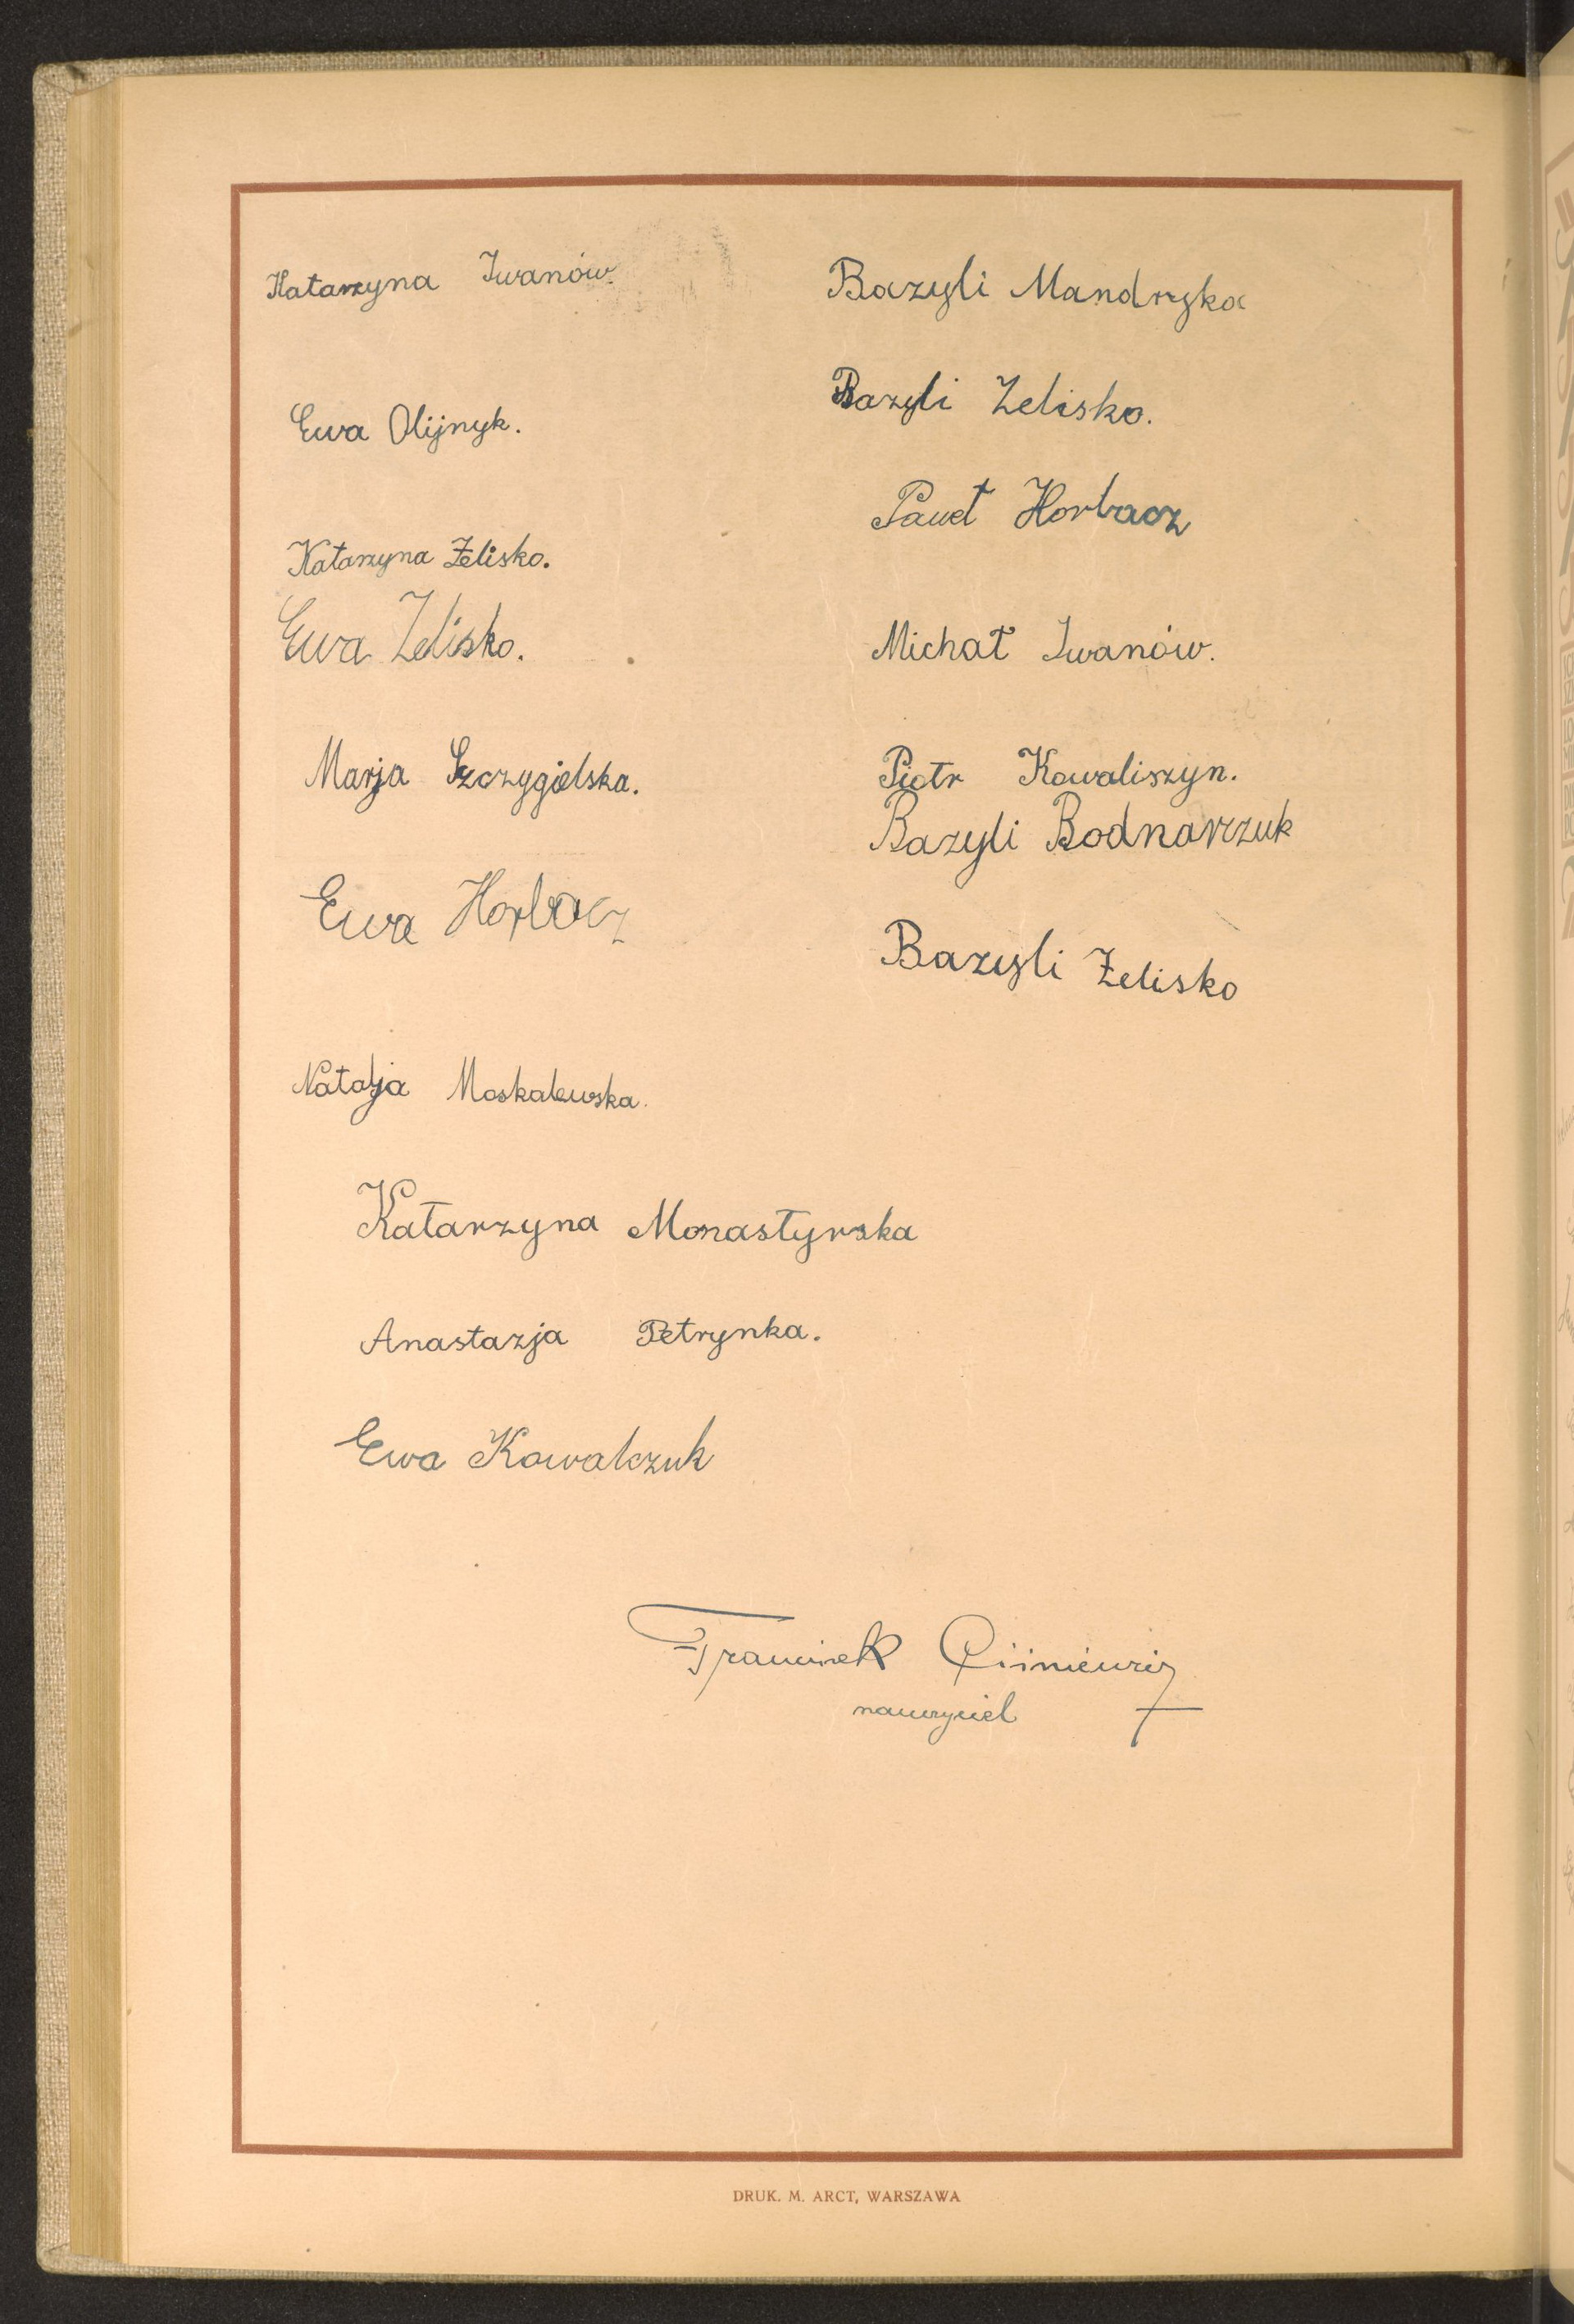 Katarzyna Iwanów.
Ewa Olijnyk.
Katarzyna Żelisko.
Ewa Żelisko.
Marja Szczygielska.
Ewa Horbacz
Natalja Moskalewska.
Katarzyna Monastyrska
Anastazja Petrynka.
Ewa Kowalczuk
Bazyli Mandryka
Bazyli Zelisko.
Paweł Horbacz
Michał Iwanów.
Piotr Kowaliszyn.
Bazyli Bodnarczuk
Bazyli Żelisko
Franciszek
nauczyciel
DRUK. M. ARCT, WARSZAWA